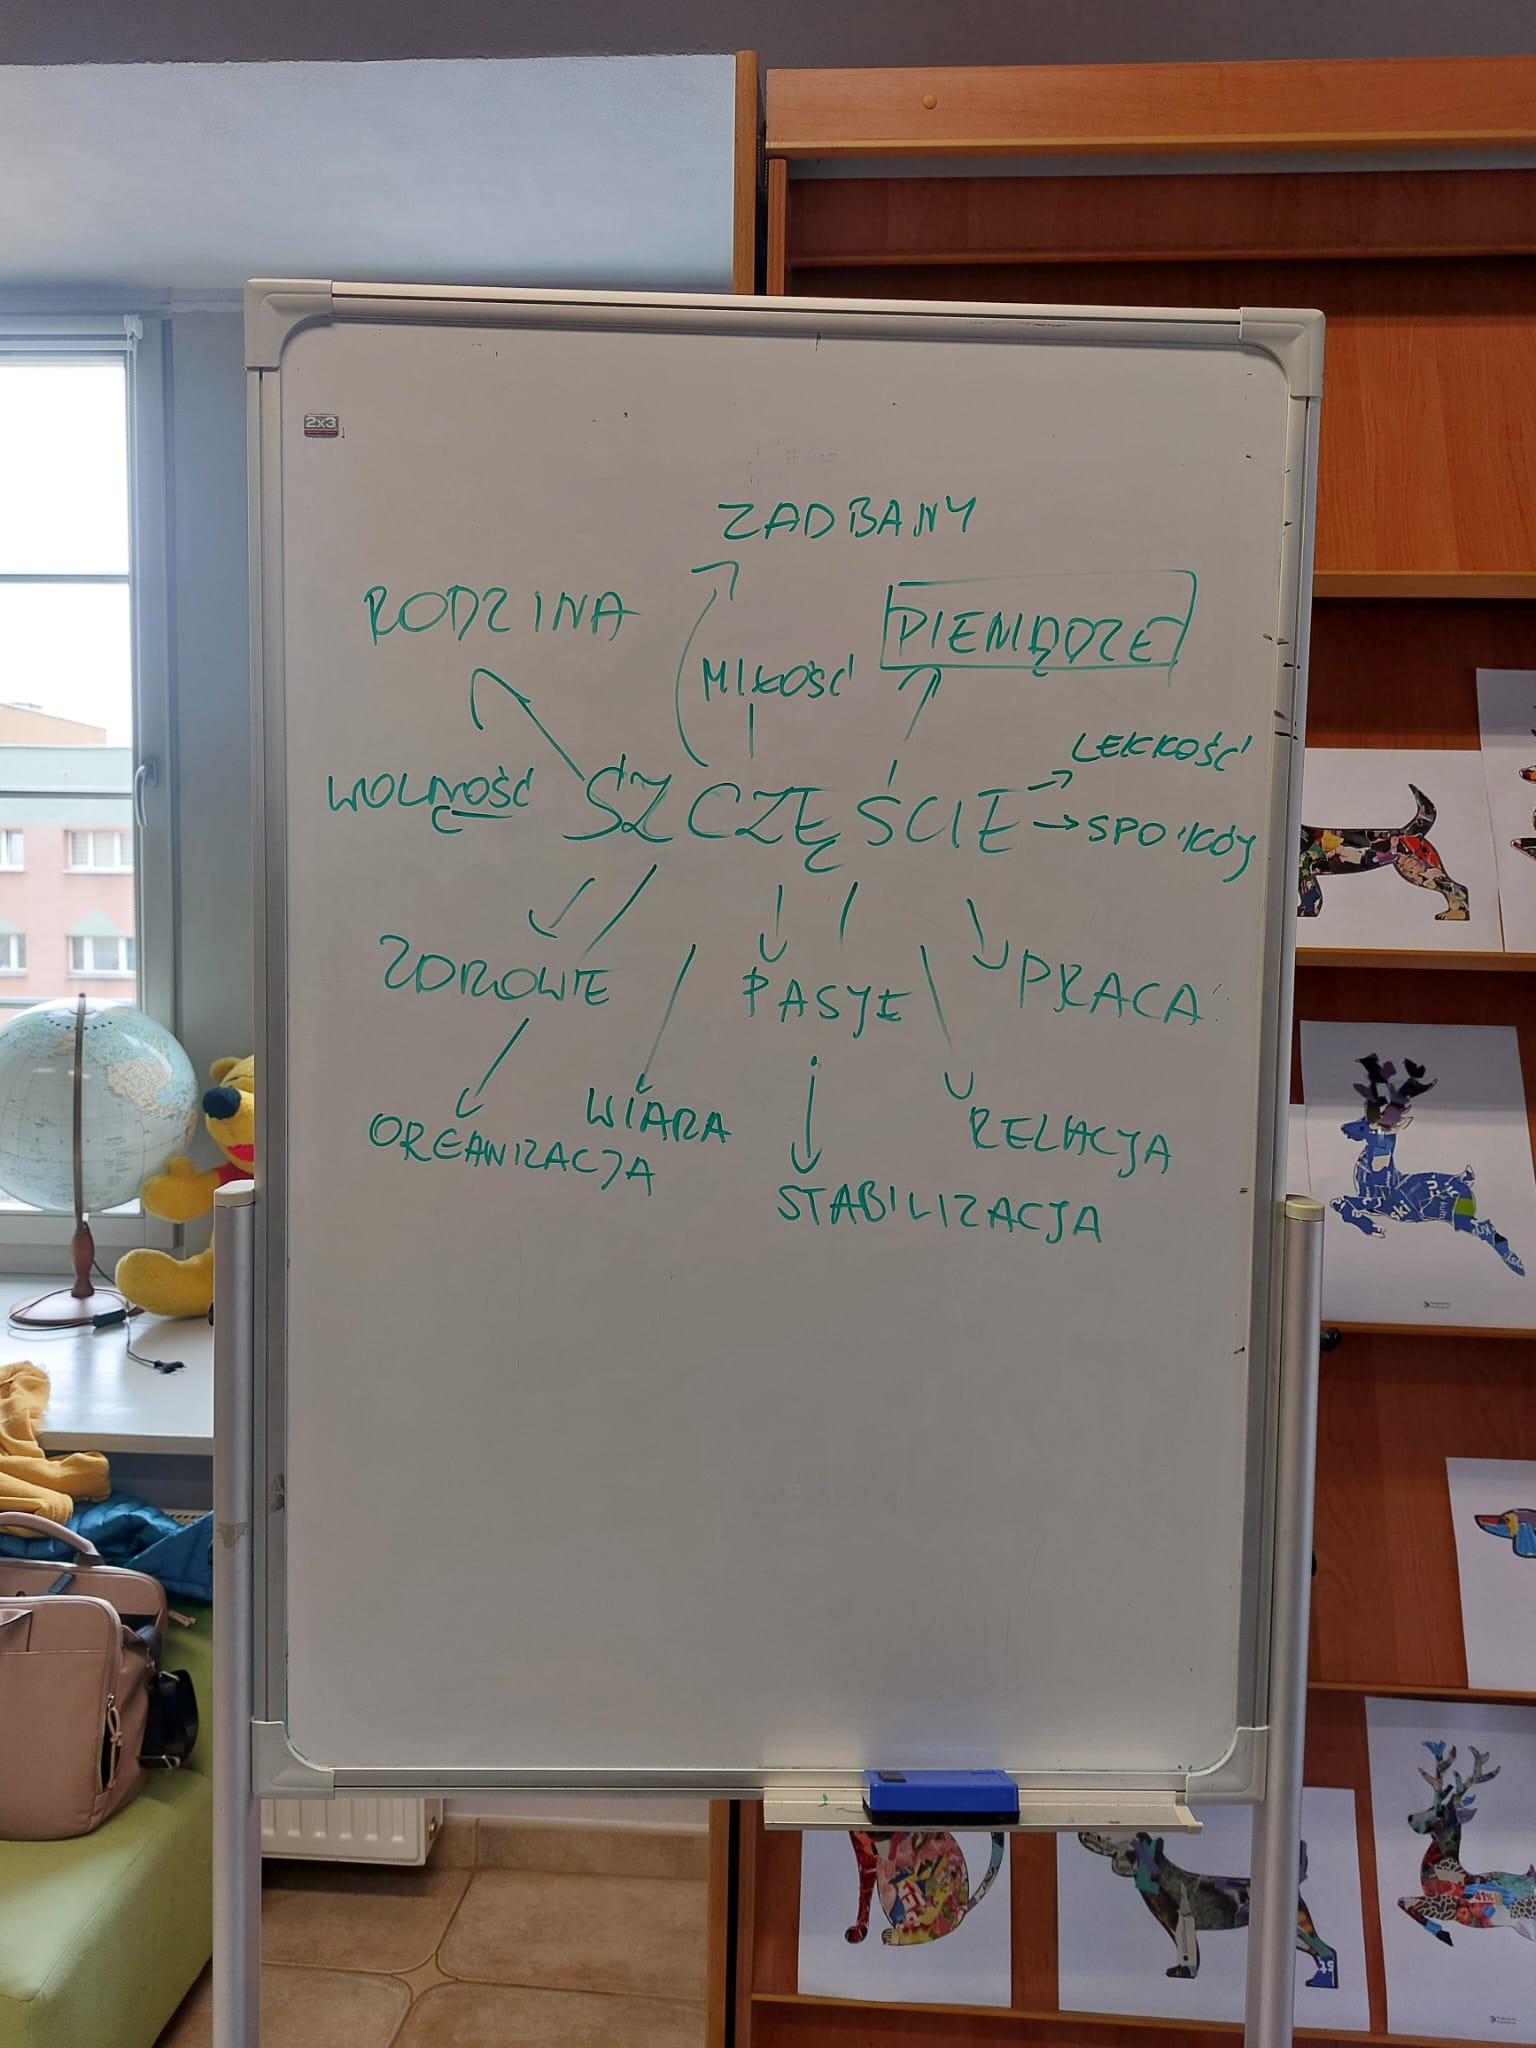 2x3
ZADBANY
RODZINA
PIENIĄDZE
MIŁOŚĆ
LEKKOŚĆ
WOLNOŚĆ
SZCZĘŚCIE
SPOKÓJ
ZDROWIE
PASJE
PRACA
ORGANIZACJA
WIARA
RELACJA
STABILIZACJA
ski